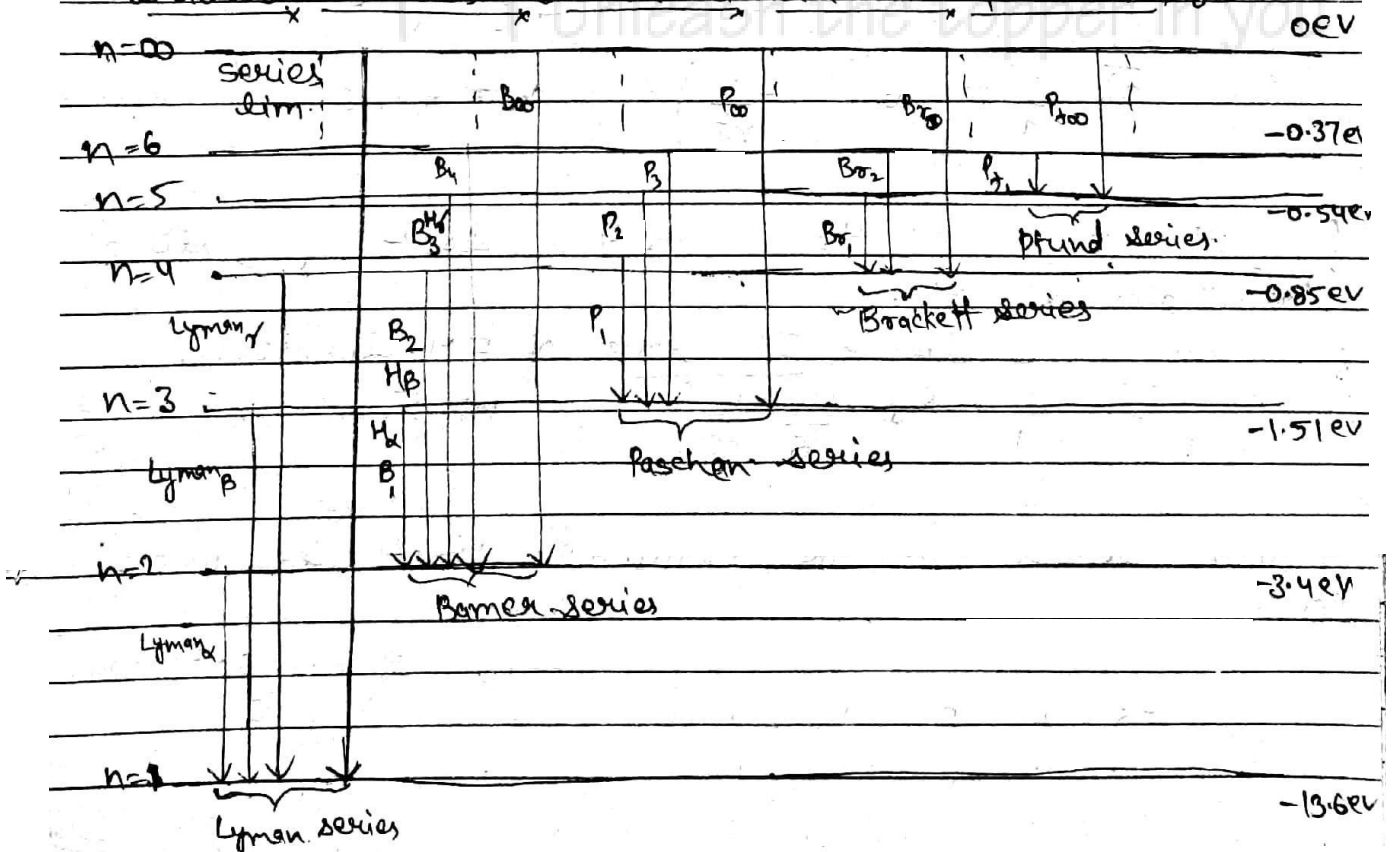 Unleash the topper in you
0ev
n=∞
series
lim.
B∞
P∞
Br∞
Pf∞
-0.37ev
n=6
B4
P3
Br2
Pf1
n=5
-0.54ev
B3 Hγ
P2
Br1
Pfund series.
n=4
-0.85ev
Lymanγ
B2
P1
Brackett series
Hβ
n=3
-1.51ev
Hα
Lymanβ
B1
Paschen series
n=2
-3.4ev
Bamer series
Lymanα
n=1
-13.6ev
Lyman series